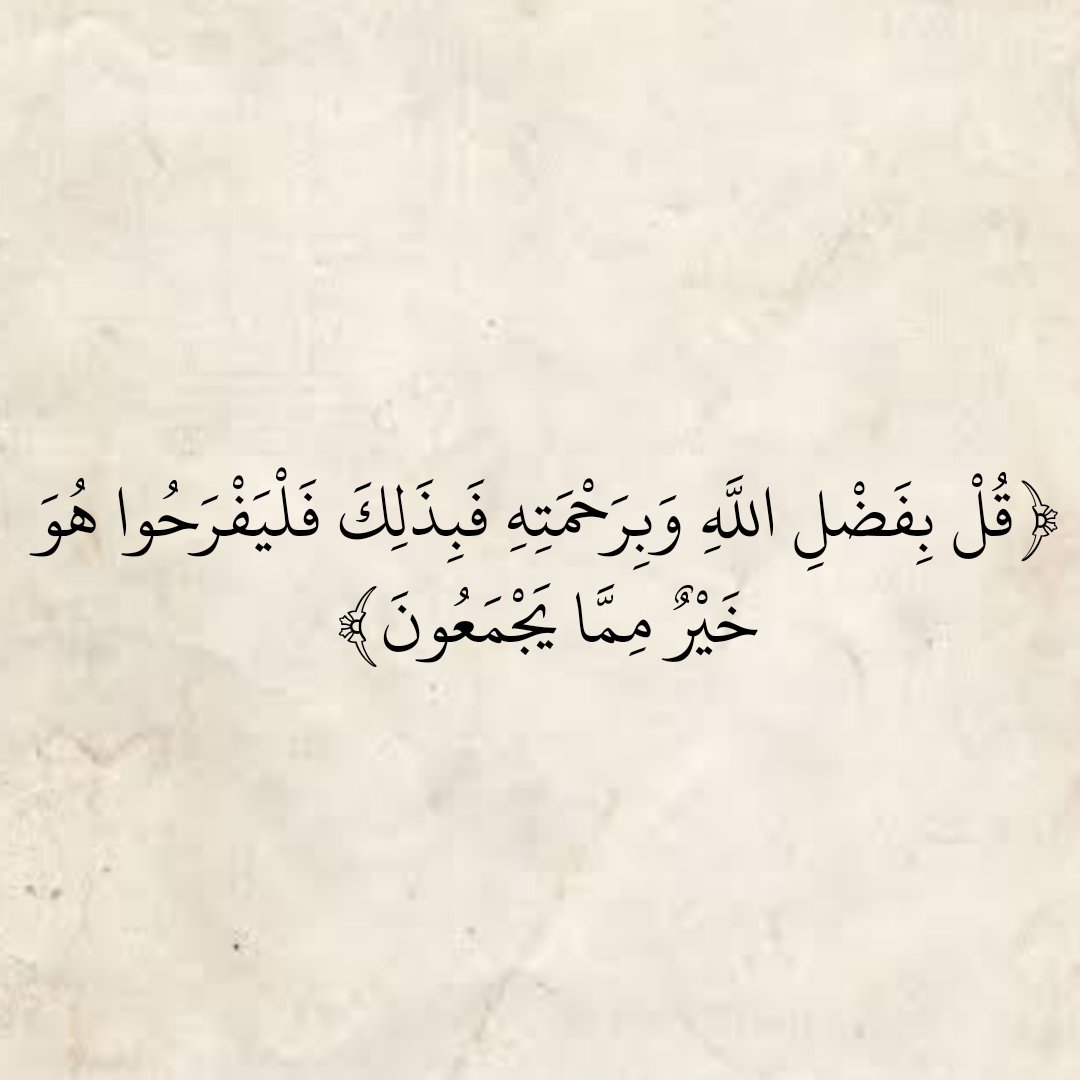 ﴿قُلْ بِفَضْلِ اللَّهِ وَبِرَحْمَتِهِ فَبِذَلِكَ فَلْيَفْرَحُوا هُوَ
خَيْرٌ مِمَّا يَجْمَعُونَ﴾